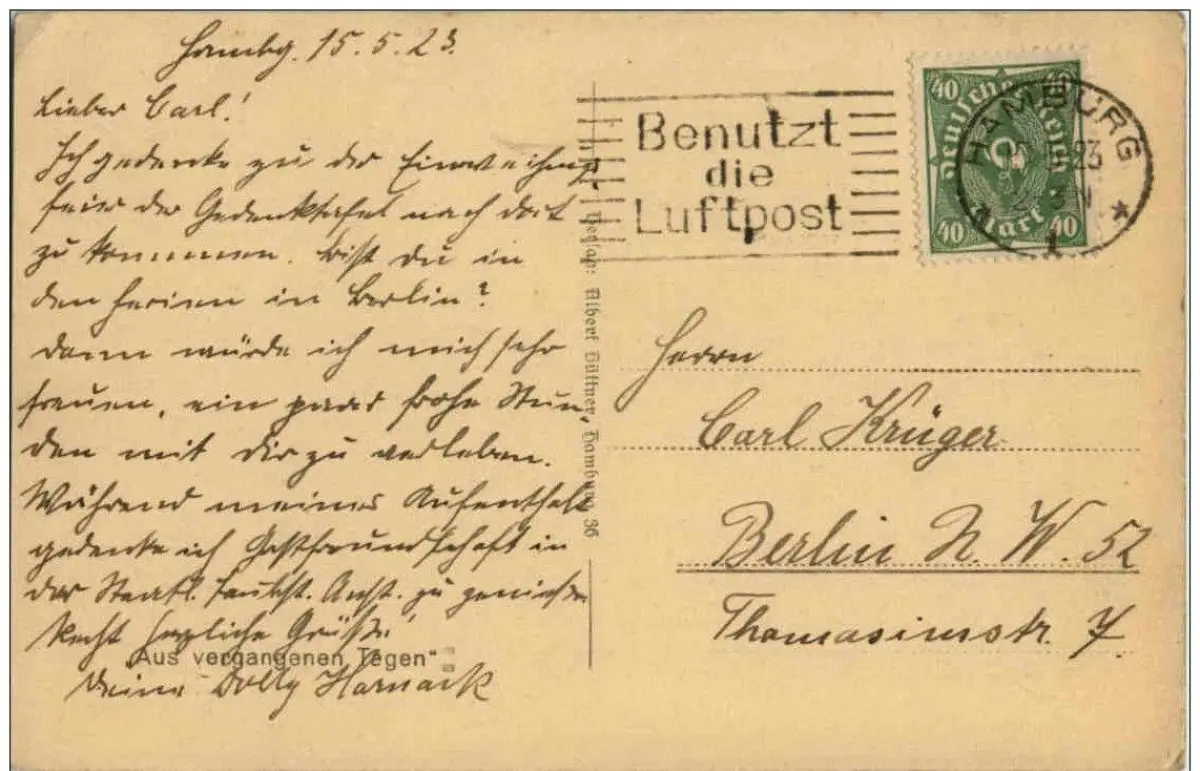 Hambg. 15.5.23.
Lieber Carl!
Ich gedenke zu der Einweihungs-
feier der Gedenktafel nach dort
zu kommen. Bist Du in
den Ferien in Berlin?
Dann würde ich mich sehr
freuen, ein paar frohe Stun-
den mit Dir zu verleben.
Während meines Aufenthalt
gedenke ich Gastfreundschaft in
der Staatl. Taubst. Anst. zu genießen
Recht herzliche Grüße!
"Aus vergangenen Tagen"
Deine Dolly Harnack
Verlag: Albert Hamburg 36
Benutzt
die
Luftpost
40 40
Deutsches Reich
Mark
40 40
HAMBURG
23
1
Herrn
Carl Krüger
Berlin N. W. 52
Thomasiusstr. 7